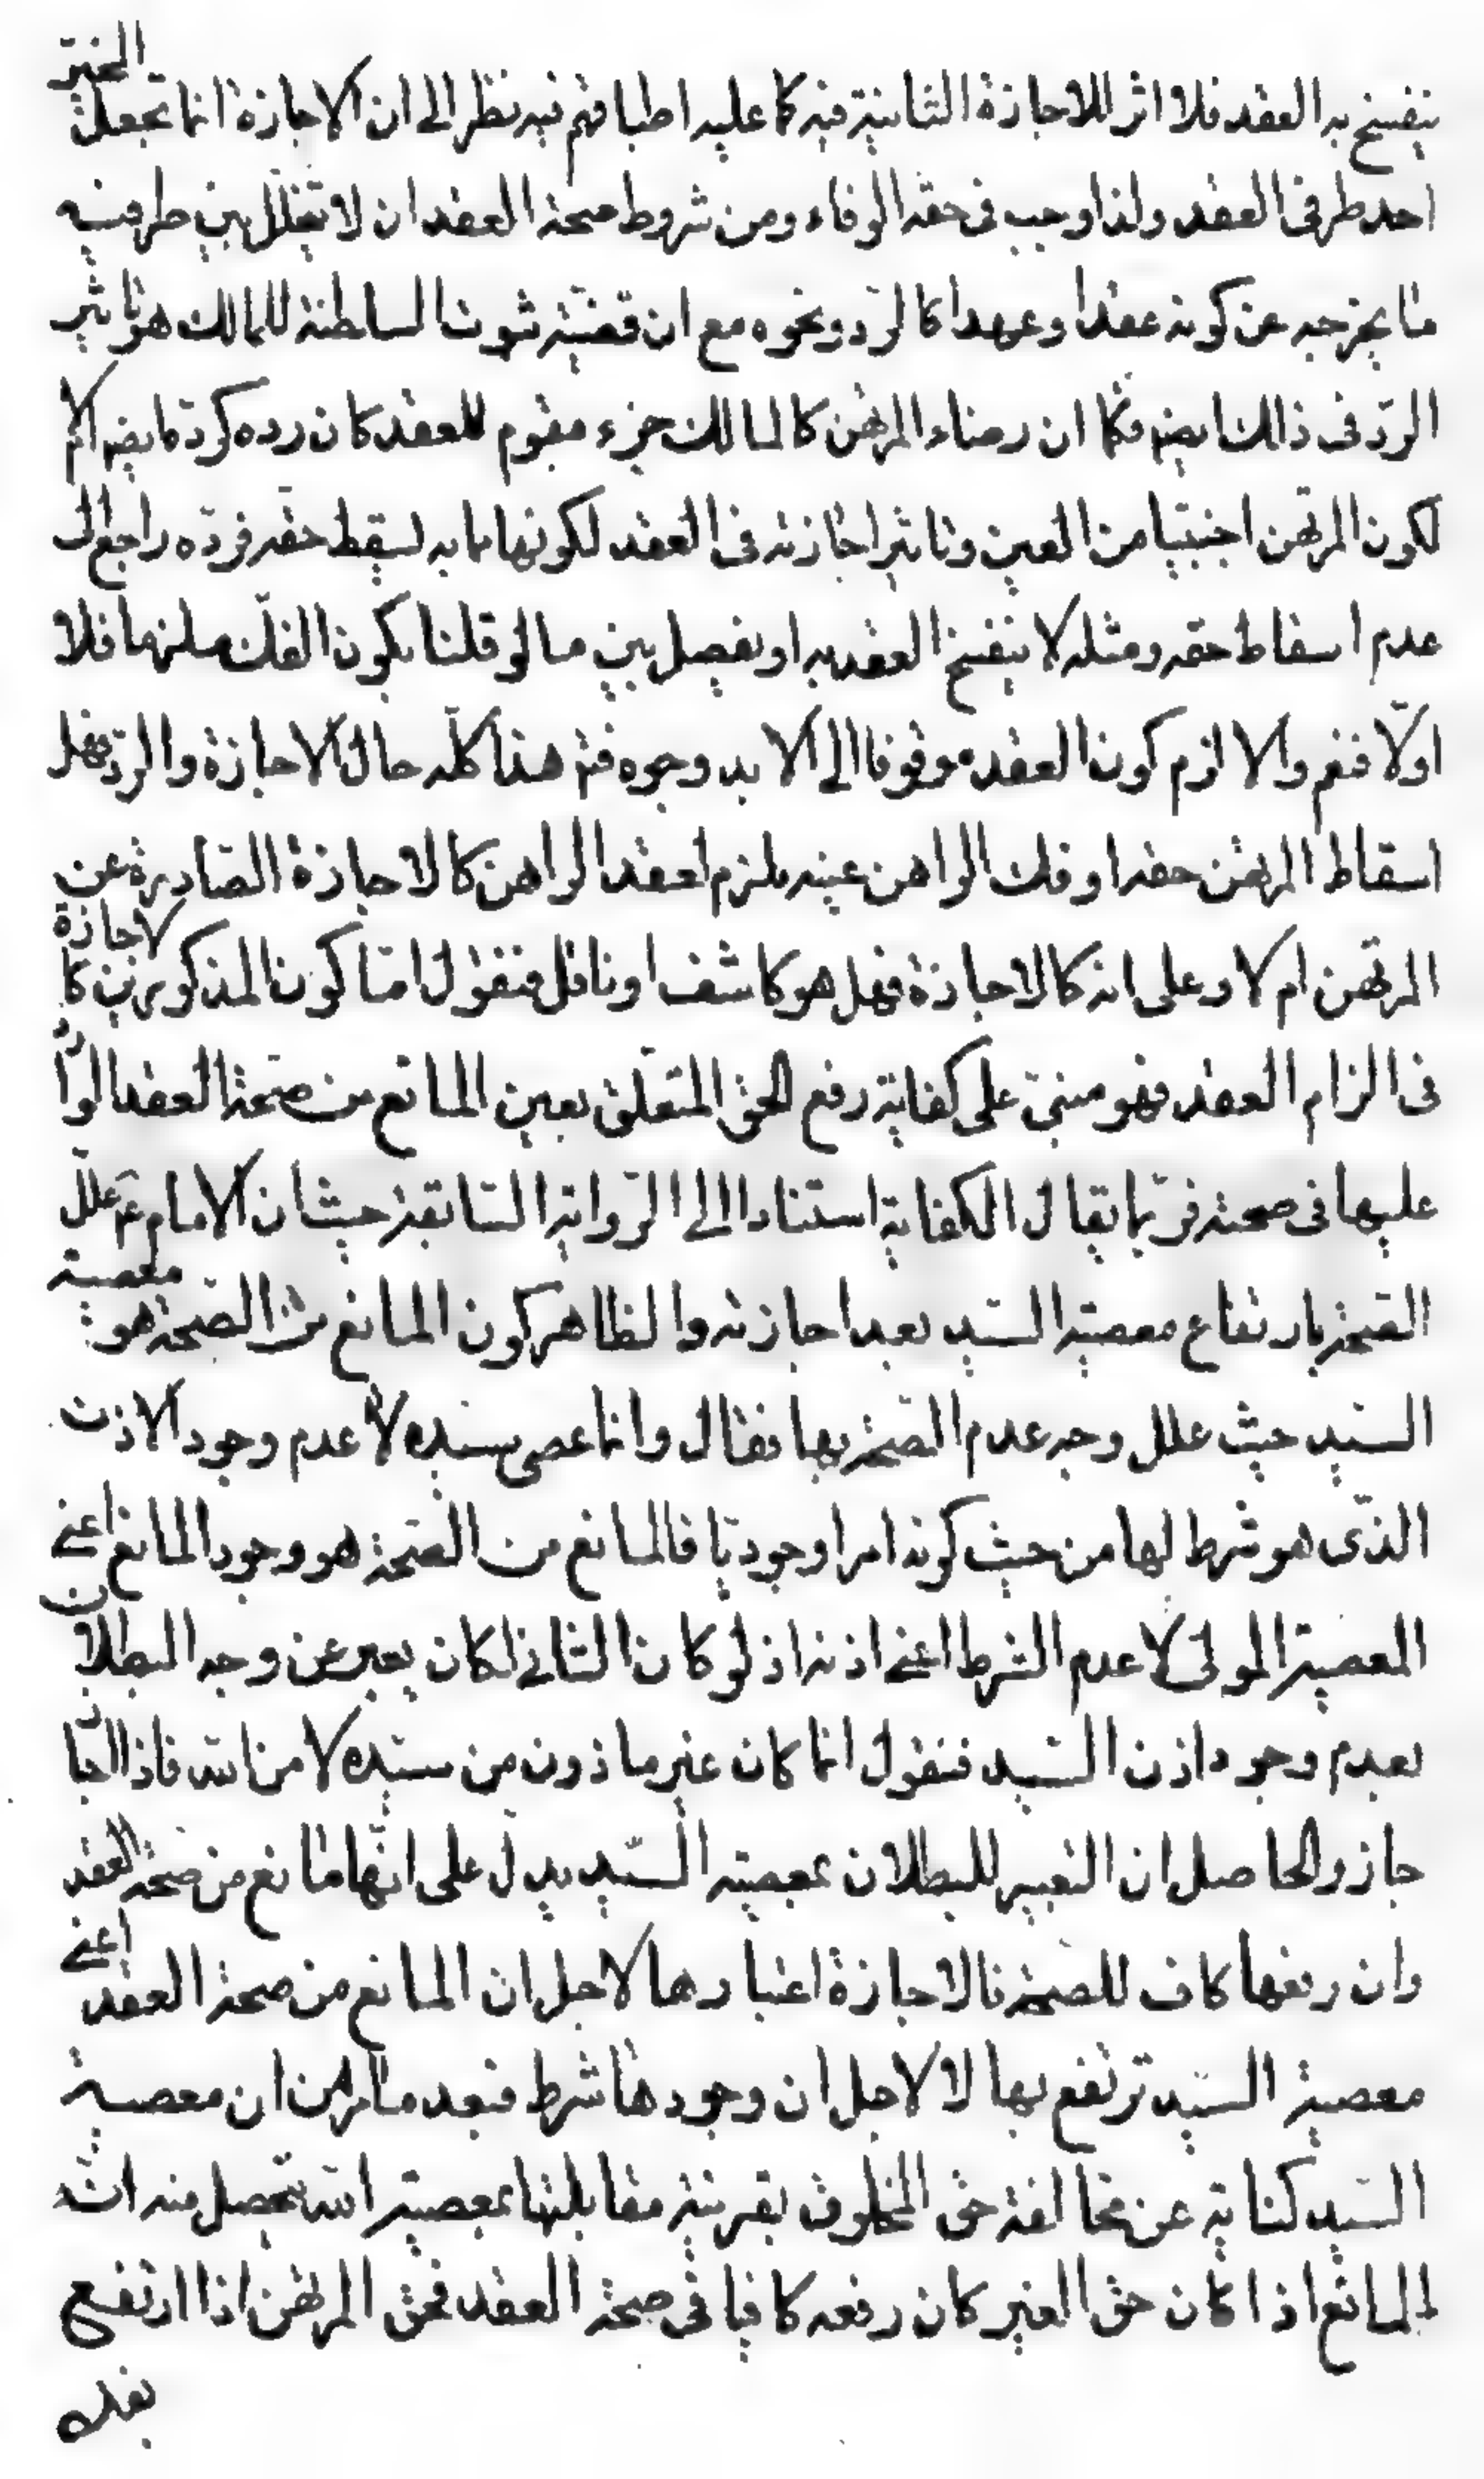 ينفسخ به العقد فلا اثر للاجازة الثانية فيه كما عليه اطباقهم فيه نظر الى ان الاجازة انما تجعل المجيز
احد طرفى العقد ولذا وجب فى حقه الوفاء ومن شروط صحة العقد ان لا يتخلل بين طرفيه
ما يخرجه عن كونه عقدا وعهدا كالرد ونحوه مع ان قضية ثبوت السلطنة للمالك هو تاثير
الردّ فى ذلك ايضه فكما ان رضاء المرتهن كالمالك جزء مقوم للعقد كان رده كردّه ايضه ام لا
لكون المرتهن اجنبيا من العين وتاثير اجازته فى العقد لكونها مما به يسقط حقه فردّه راجع الى
عدم اسقاط حقه ومثله لا ينفسخ العقد به او يفصل بين ما لو قلنا بكون الفك ملزما فلا
اولا فنعم والا لزم كون العقد موقوفا الى الابد وجوه فتم هذا كله حال الاجازة والردّ فهل
اسقاط المرتهن حقه او فك الراهن عينه ملزم لعقد الراهن كالاجازة الصادرة عن
المرتهن ام لا وعلى انه كالاجازة فهل هو كاشف او ناقل فنقول امّا كون المذكورين كالاجازة
فى الزام العقد فهو مبنىّ على كفاية رفع الحق المتعلق بعين المانع من صحة العقد الوارد
عليها فى صحته فربّما يقال الكفاية استنادا الى الرّواية السّابقة حيث ان الامام ع علل
الصّحة بارتفاع معصية السيد بعد اجازته والظاهر كون المانع من الصّحة هو معصية
السيد حيث علل وجه عدم الصّحة بها فقال وانما عصى سيده لا عدم وجود الاذن
الذى هو شرط لها من حيث كونه امرا وجوديا فالمانع من الصّحة هو وجود المانع اعنى
المعصية المولى لا عدم الشرط اعنى اذنه اذ لو كان الثانى لكان يعبر عن وجه البطلان
بعدم وجود اذن السّيد فنقول انما كان غير ماذون من سيّده لا من الله فاذا اجاز
جاز والحاصل ان التعبير للبطلان بمعصية السّيد يدل على انّها مانع من صحة العقد
وان رفعها كاف للصحة فالاجازة اعتبارها لاجل ان المانع من صحة العقد اعنى
معصية السّيد ترتفع بها لا لاجل ان وجودها شرط فبعد ما مر من ان معصية
السّيد كناية عن مخالفة حق المخلوق بقرينة مقابلتها بمعصية الله يتحصل منه انه
المانع اذا كان حق الغير كان رفعه كافيا فى صحة العقد فحق المرتهن اذا ارتفع
بفكه